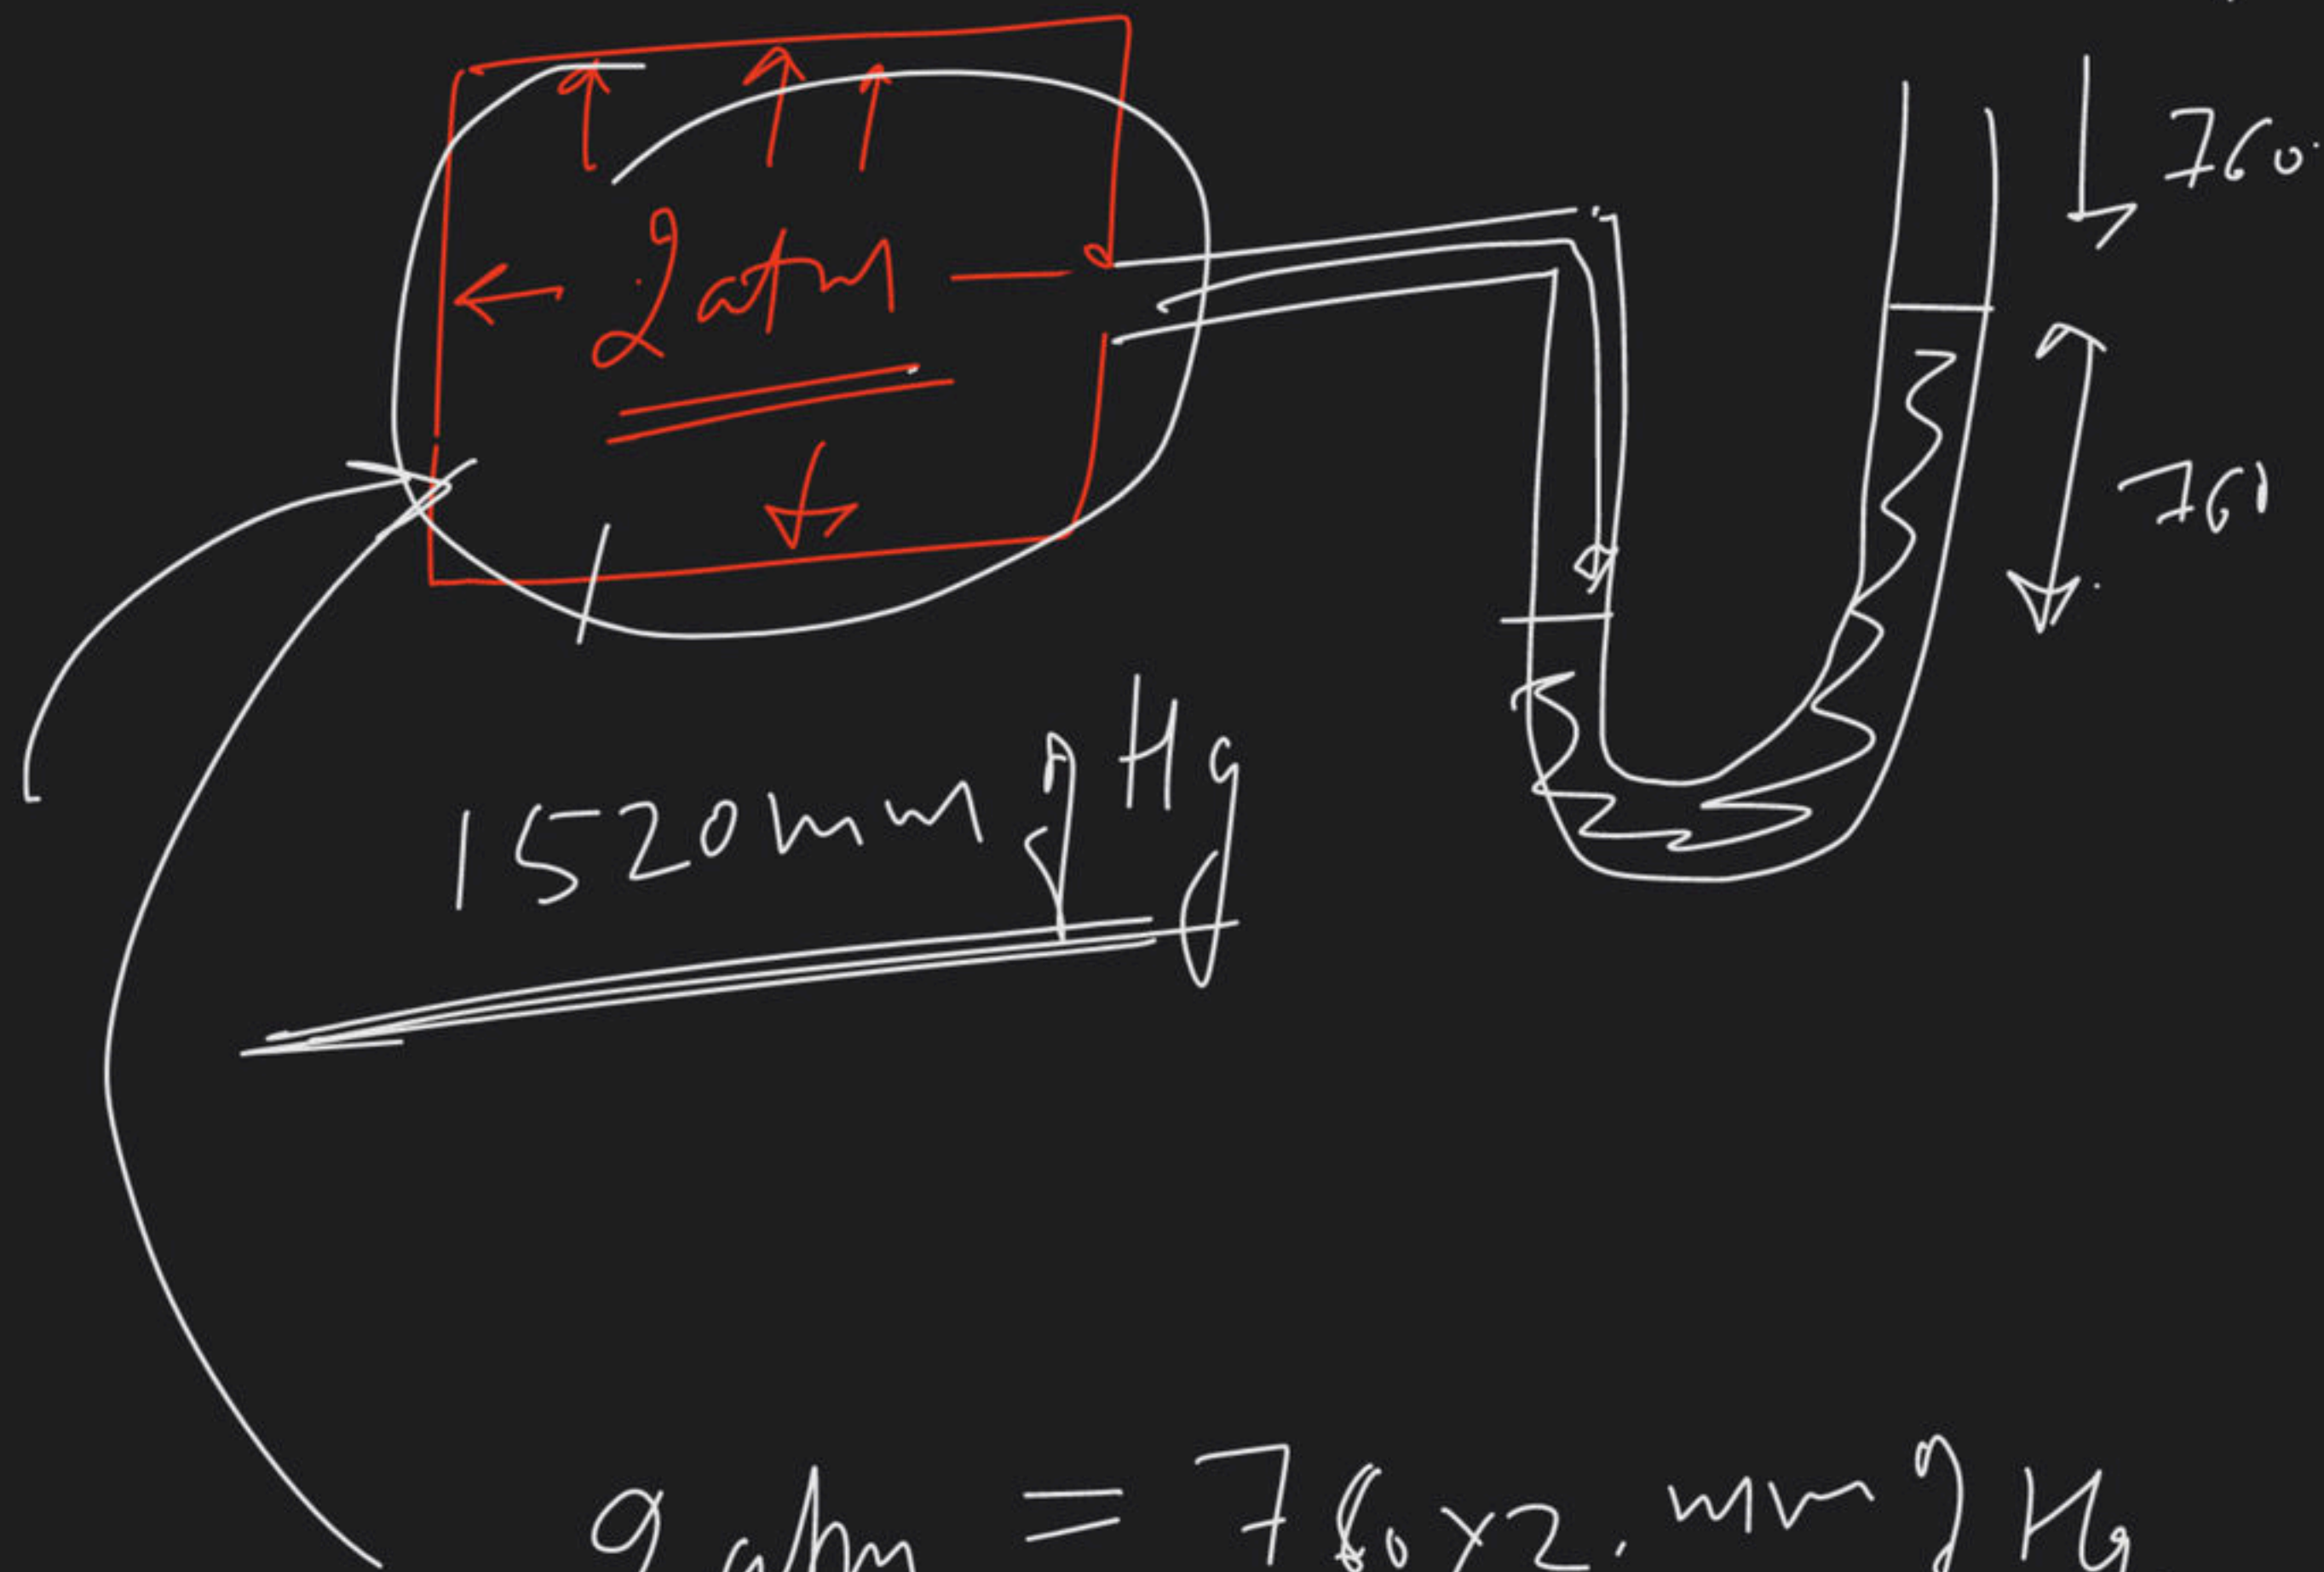 760
2 atm
760
1520 mm of Hg
2 atm = 760 x 2 . mm of Hg